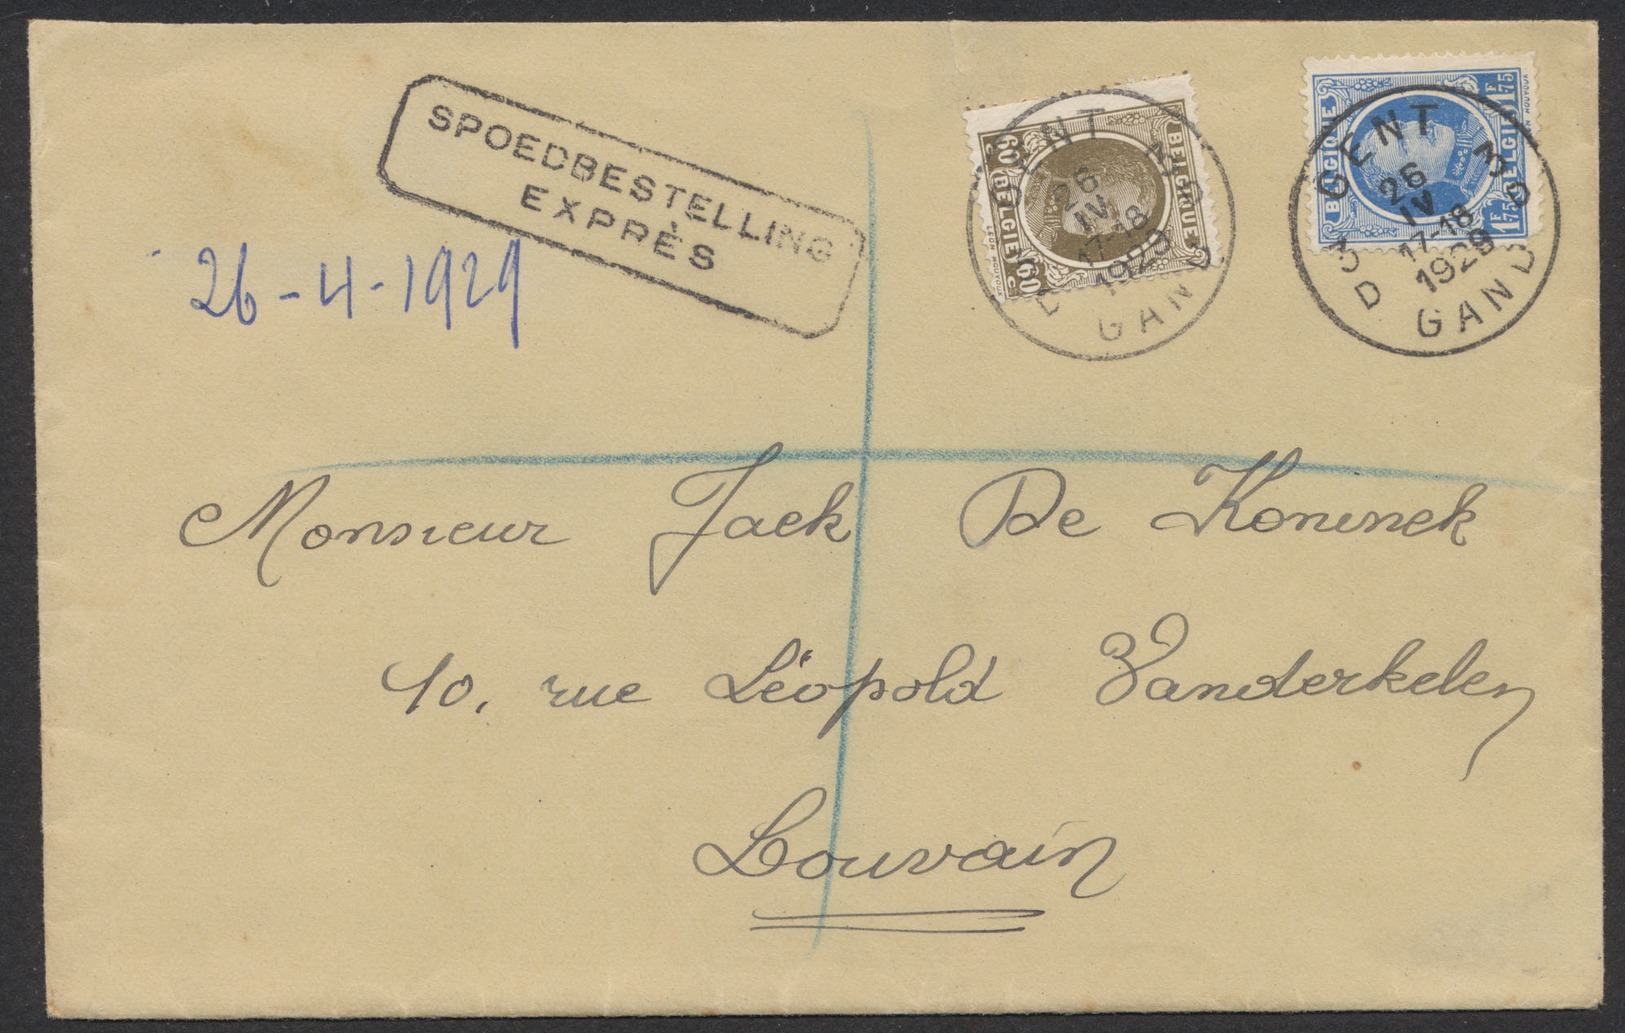 SPOEDBESTELLING
EXPRÈS
26-4-1929
BELGIQUE
60 c
BELGIË
60 c
GENT
3D
26
IV
17-18
1929
3D
GAND
BELGIQUE
1F75
BELGIË
1F75
GENT
3D
26
IV
17-18
1929
3D
GAND
Monsieur Jack De Koninck
10, rue Léopold Vanderkelen
Louvain